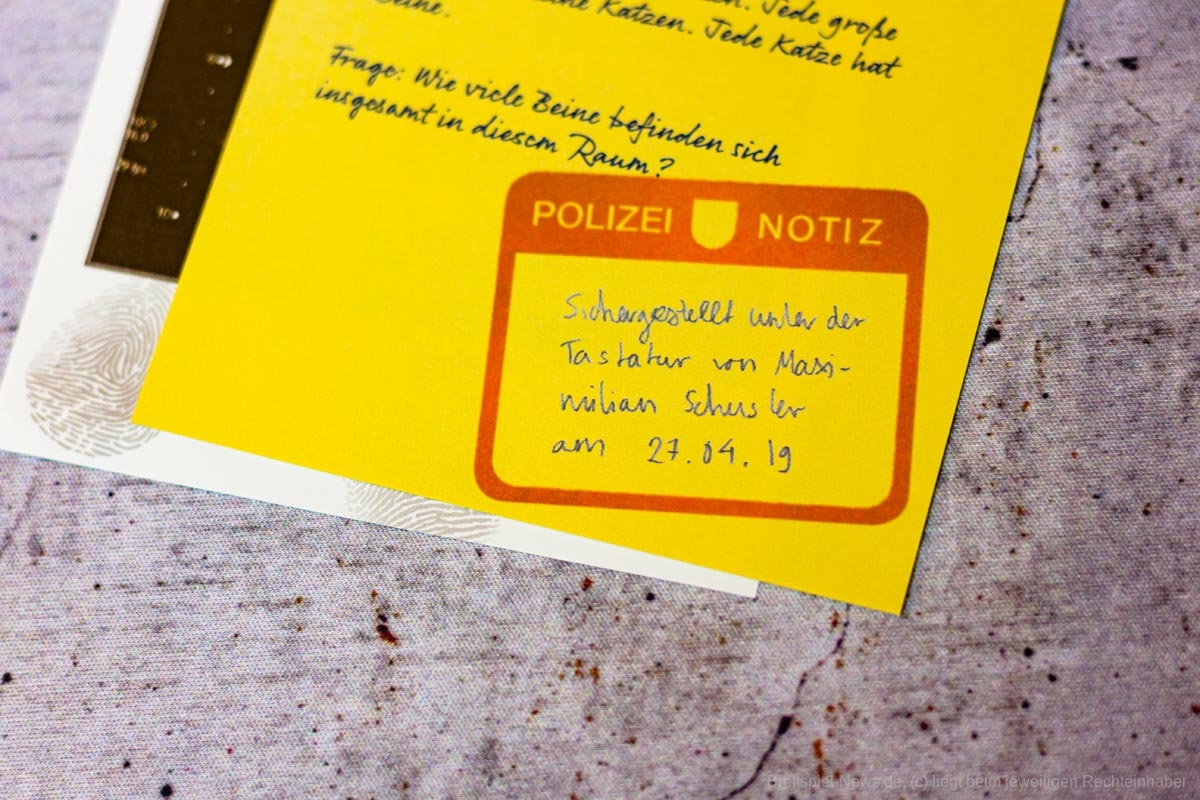 Jede große
Katzen. Jede Katze hat
Beine.
Frage: Wie viele Beine befinden sich
insgesamt in diesem Raum?
POLIZEI NOTIZ
Sichergestellt unter der
Tastatur von Maxi-
milian Schusler
am 27.04.19
Brettspiel-News.de, (c) liegt beim jeweiligen Rechteinhaber